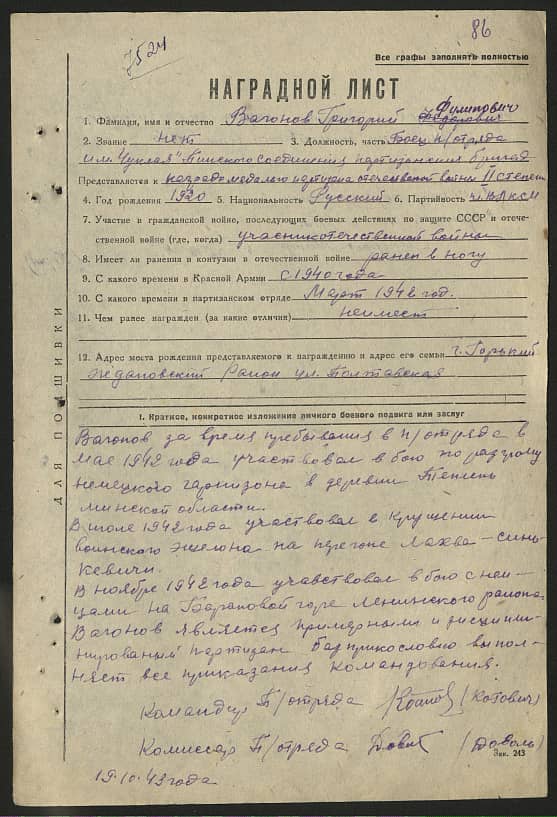 7524
86
Все графы заполнять полностью
НАГРАДНОЙ ЛИСТ
Филипович
1. Фамилия, имя и отчество Вагонов Григорий
2. Звание нет 3. Должность, часть Боец п/отряда
им. Чуклая" Пинского соединения партизанских бригад
Представляется к награде медалью партизана отечественной войны II степени
4. Год рождения 1920 5. Национальность Русский 6. Партийность чл. ВЛКСМ
7. Участие в гражданской войне, последующих боевых действиях по защите СССР и отече-
ственной войне (где, когда) участник отечественной войны
8. Имеет ли ранения и контузии в отечественной войне ранен в ногу
9. С какого времени в Красной Армии с 1940 года
10. С какого времени в партизанском отряде Март 1942 год.
11. Чем ранее награжден (за какие отличия) неимеет
12. Адрес места рождения представляемого к награждению и адрес его семьи г. Горький
Ждановский Район ул. Полтавская
ДЛЯ ПОДШИВКИ
I. Краткое, конкретное изложение личного боевого подвига или заслуг
Вагонов за время пребывания в п/отряда в
мае 1942 года участвовал в бою по разгрому
немецкого гарнизона в деревни
минской области.
В июле 1942 года участвовал в крушении
воинского эшелона на перегоне Лахва-синь-
кевичи.
В ноябре 1942 года учавствовал в бою с нем-
цами на Барановой горе Ленинского района.
Вагонов является примерными и дисципли-
нированый партизан безприкословно выпол-
няет все приказания командования.
Командир П/отряда (Котович)
Комиссар П/отряда (Доволь)
Зак. 243
19.10.43 года